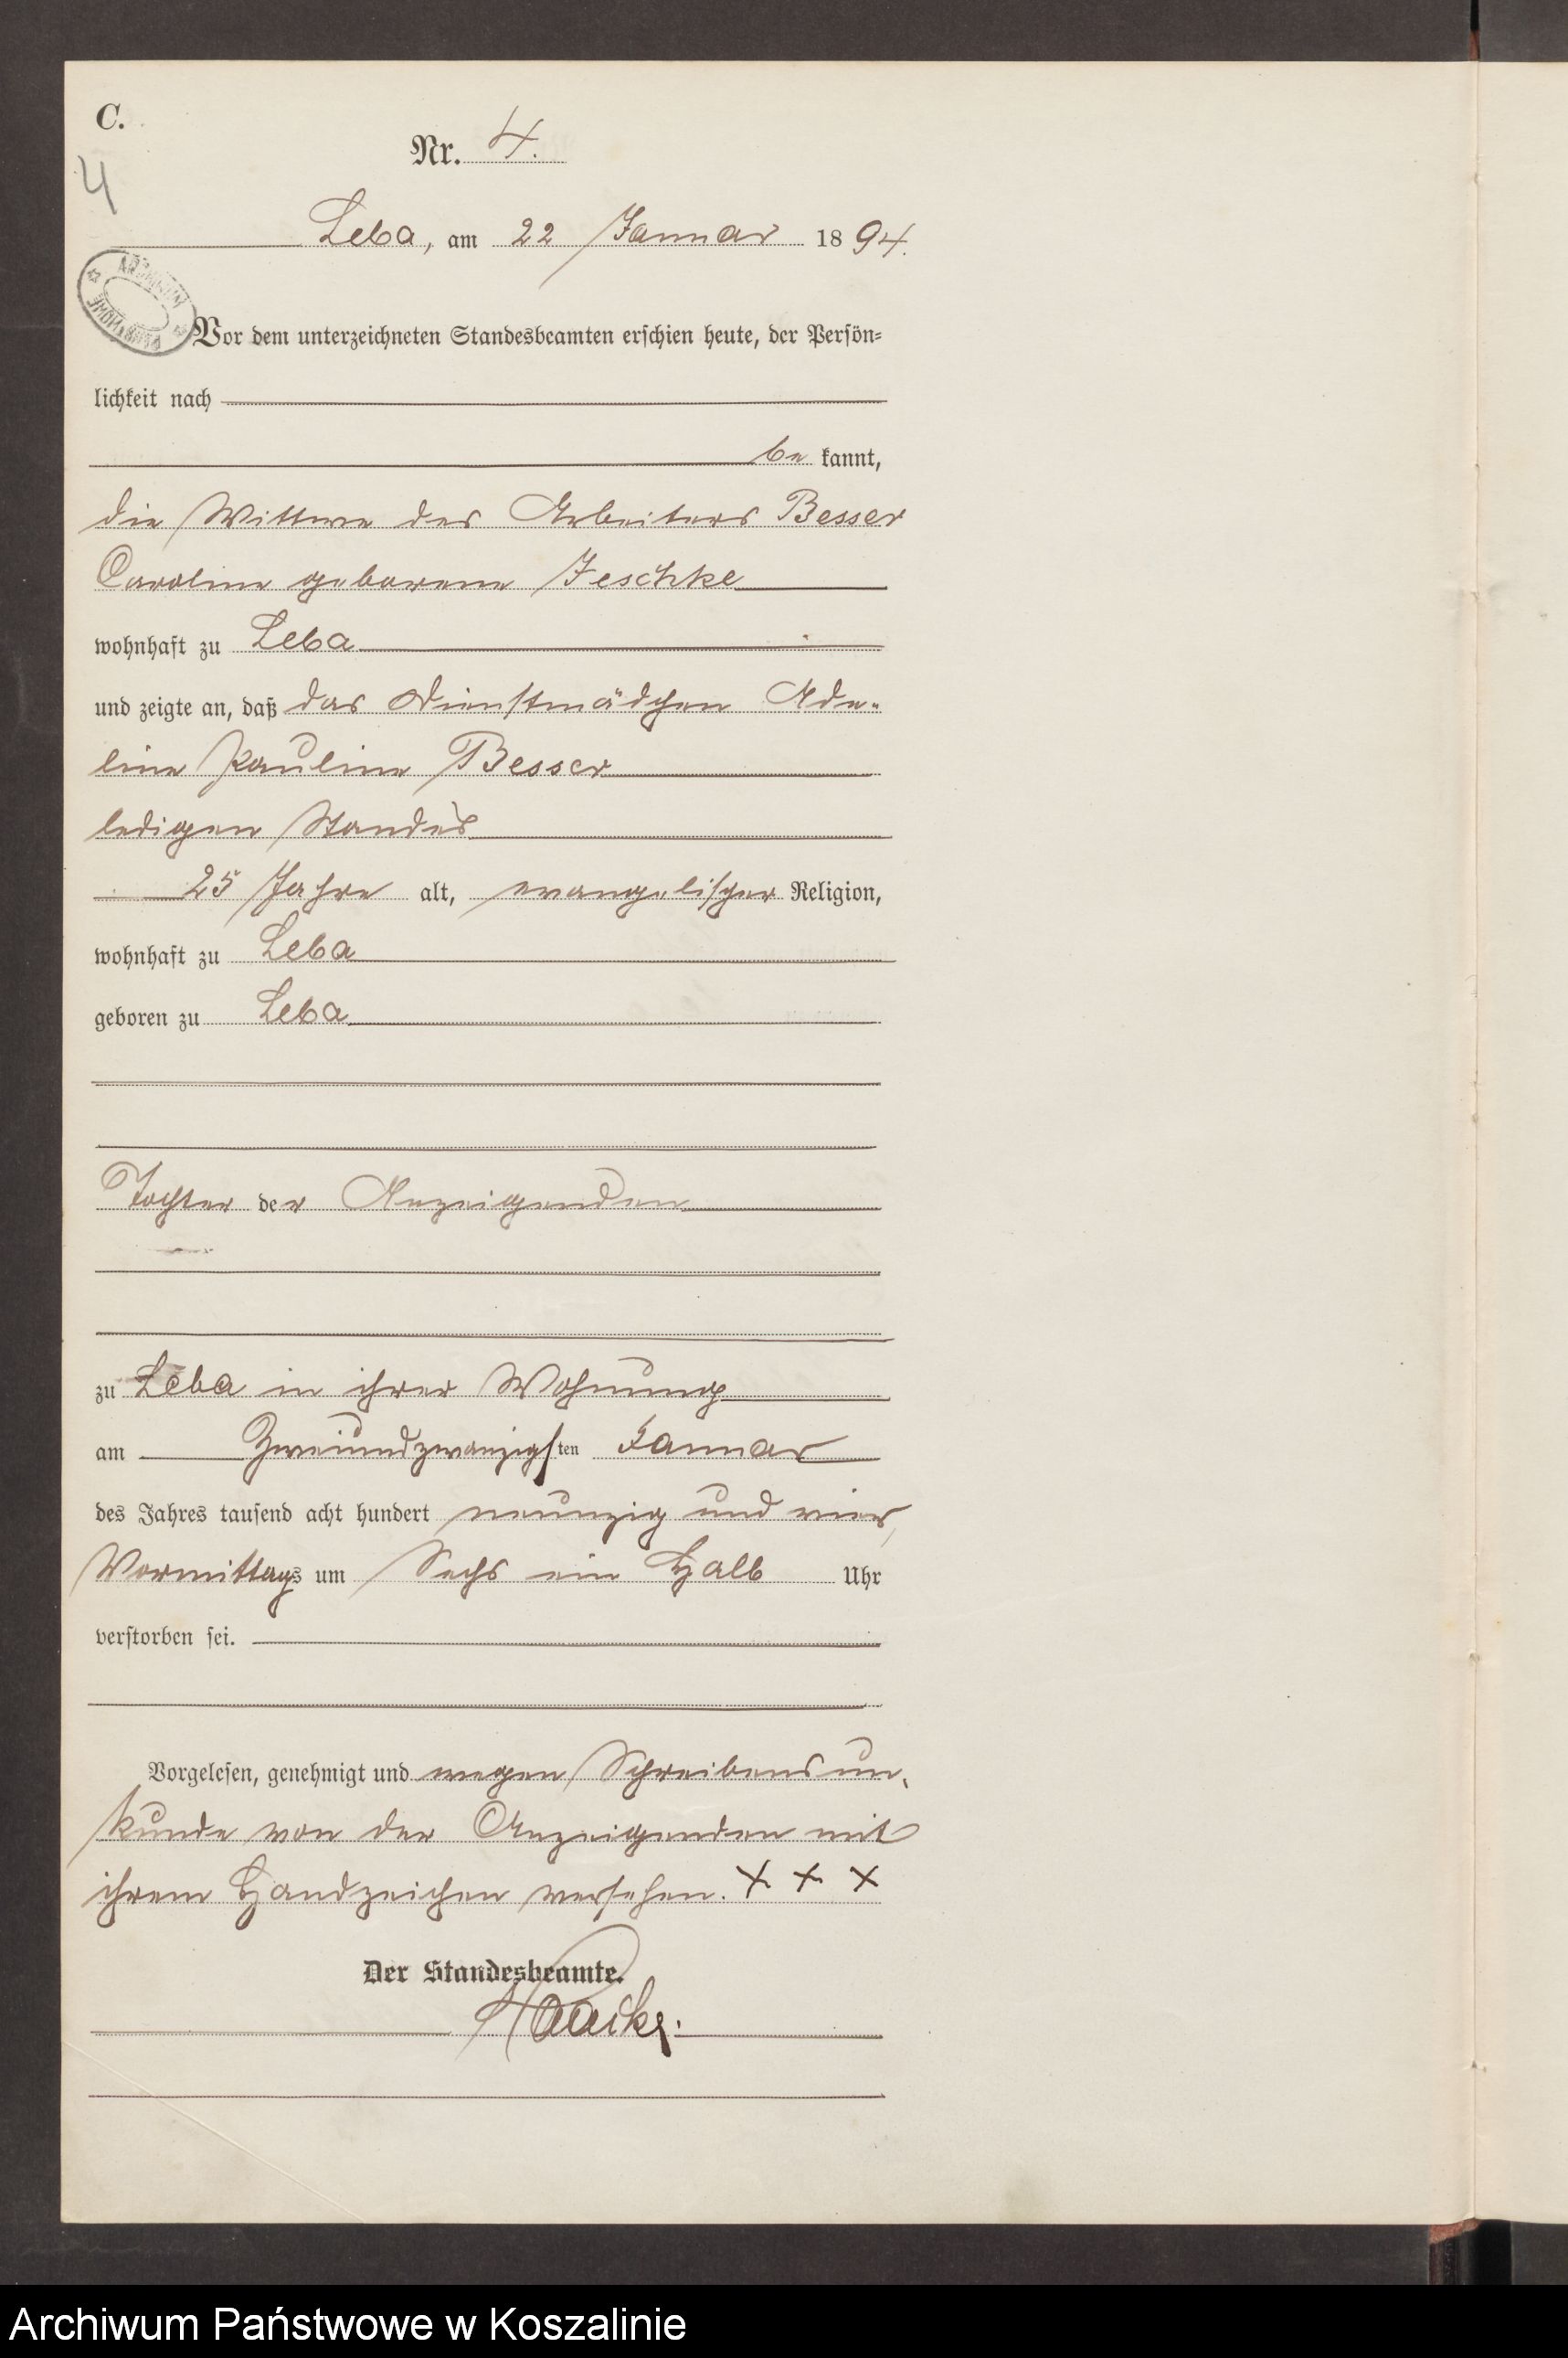 C.
Nr. 4.
4
Leba, am 22 Januar 1894.
ARCHIWUM PAŃSTWOWE
Vor dem unterzeichneten Standesbeamten erschien heute, der Persön=
lichkeit nach
be kannt,
die Wittwe des Arbeiters Besser
Caroline geborene Jeschke
wohnhaft zu Leba
und zeigte an, daß das Dienstmädchen Ade=
line Pauline Besser
ledigen Standes
25 Jahre alt, evangelischer Religion,
wohnhaft zu Leba
geboren zu Leba
Tochter der Anzeigenden
zu Leba in ihrer Wohnung
am Zweiundzwanzigsten Januar
des Jahres tausend acht hundert neunzig und vier,
Vormittags um Sechs ein Halb Uhr
verstorben sei.
Vorgelesen, genehmigt und wegen Schreibensun=
kunde von der Anzeigenden mit
ihrem Handzeichen versehen. + + +
Der Standesbeamte.
Archiwum Państwowe w Koszalinie